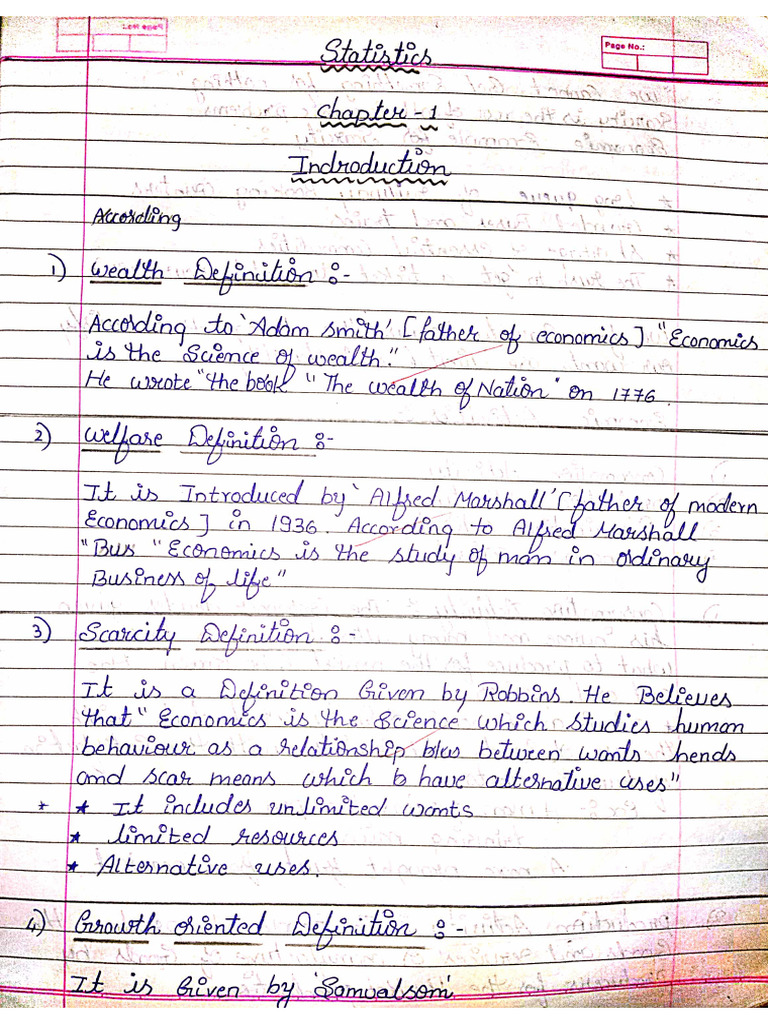 Statistics
Page No.:
Chapter - 1
Indroduction
According
1) Wealth Definition :-
According to 'Adam Smith' [father of economics] "Economics
is the Science of wealth."
He wrote "the book "The wealth of Nation" on 1776.
2) Welfare Definition :-
It is Introduced by 'Alfred Marshall' [father of modern
Economics] in 1936. According to Alfred Marshall
"Bus "Economics is the study of man in ordinary
Business of life"
3) Scarcity Definition :-
It is a Definition Given by Robbins. He Believes
that "Economics is the Science which studies human
behaviour as a relationship between wants hends
and scar means which have alternative uses"
* * It includes unlimited wants
* limited resources
* Alternative uses.
4) Growth oriented Definition :-
It is Given by 'Samualson'